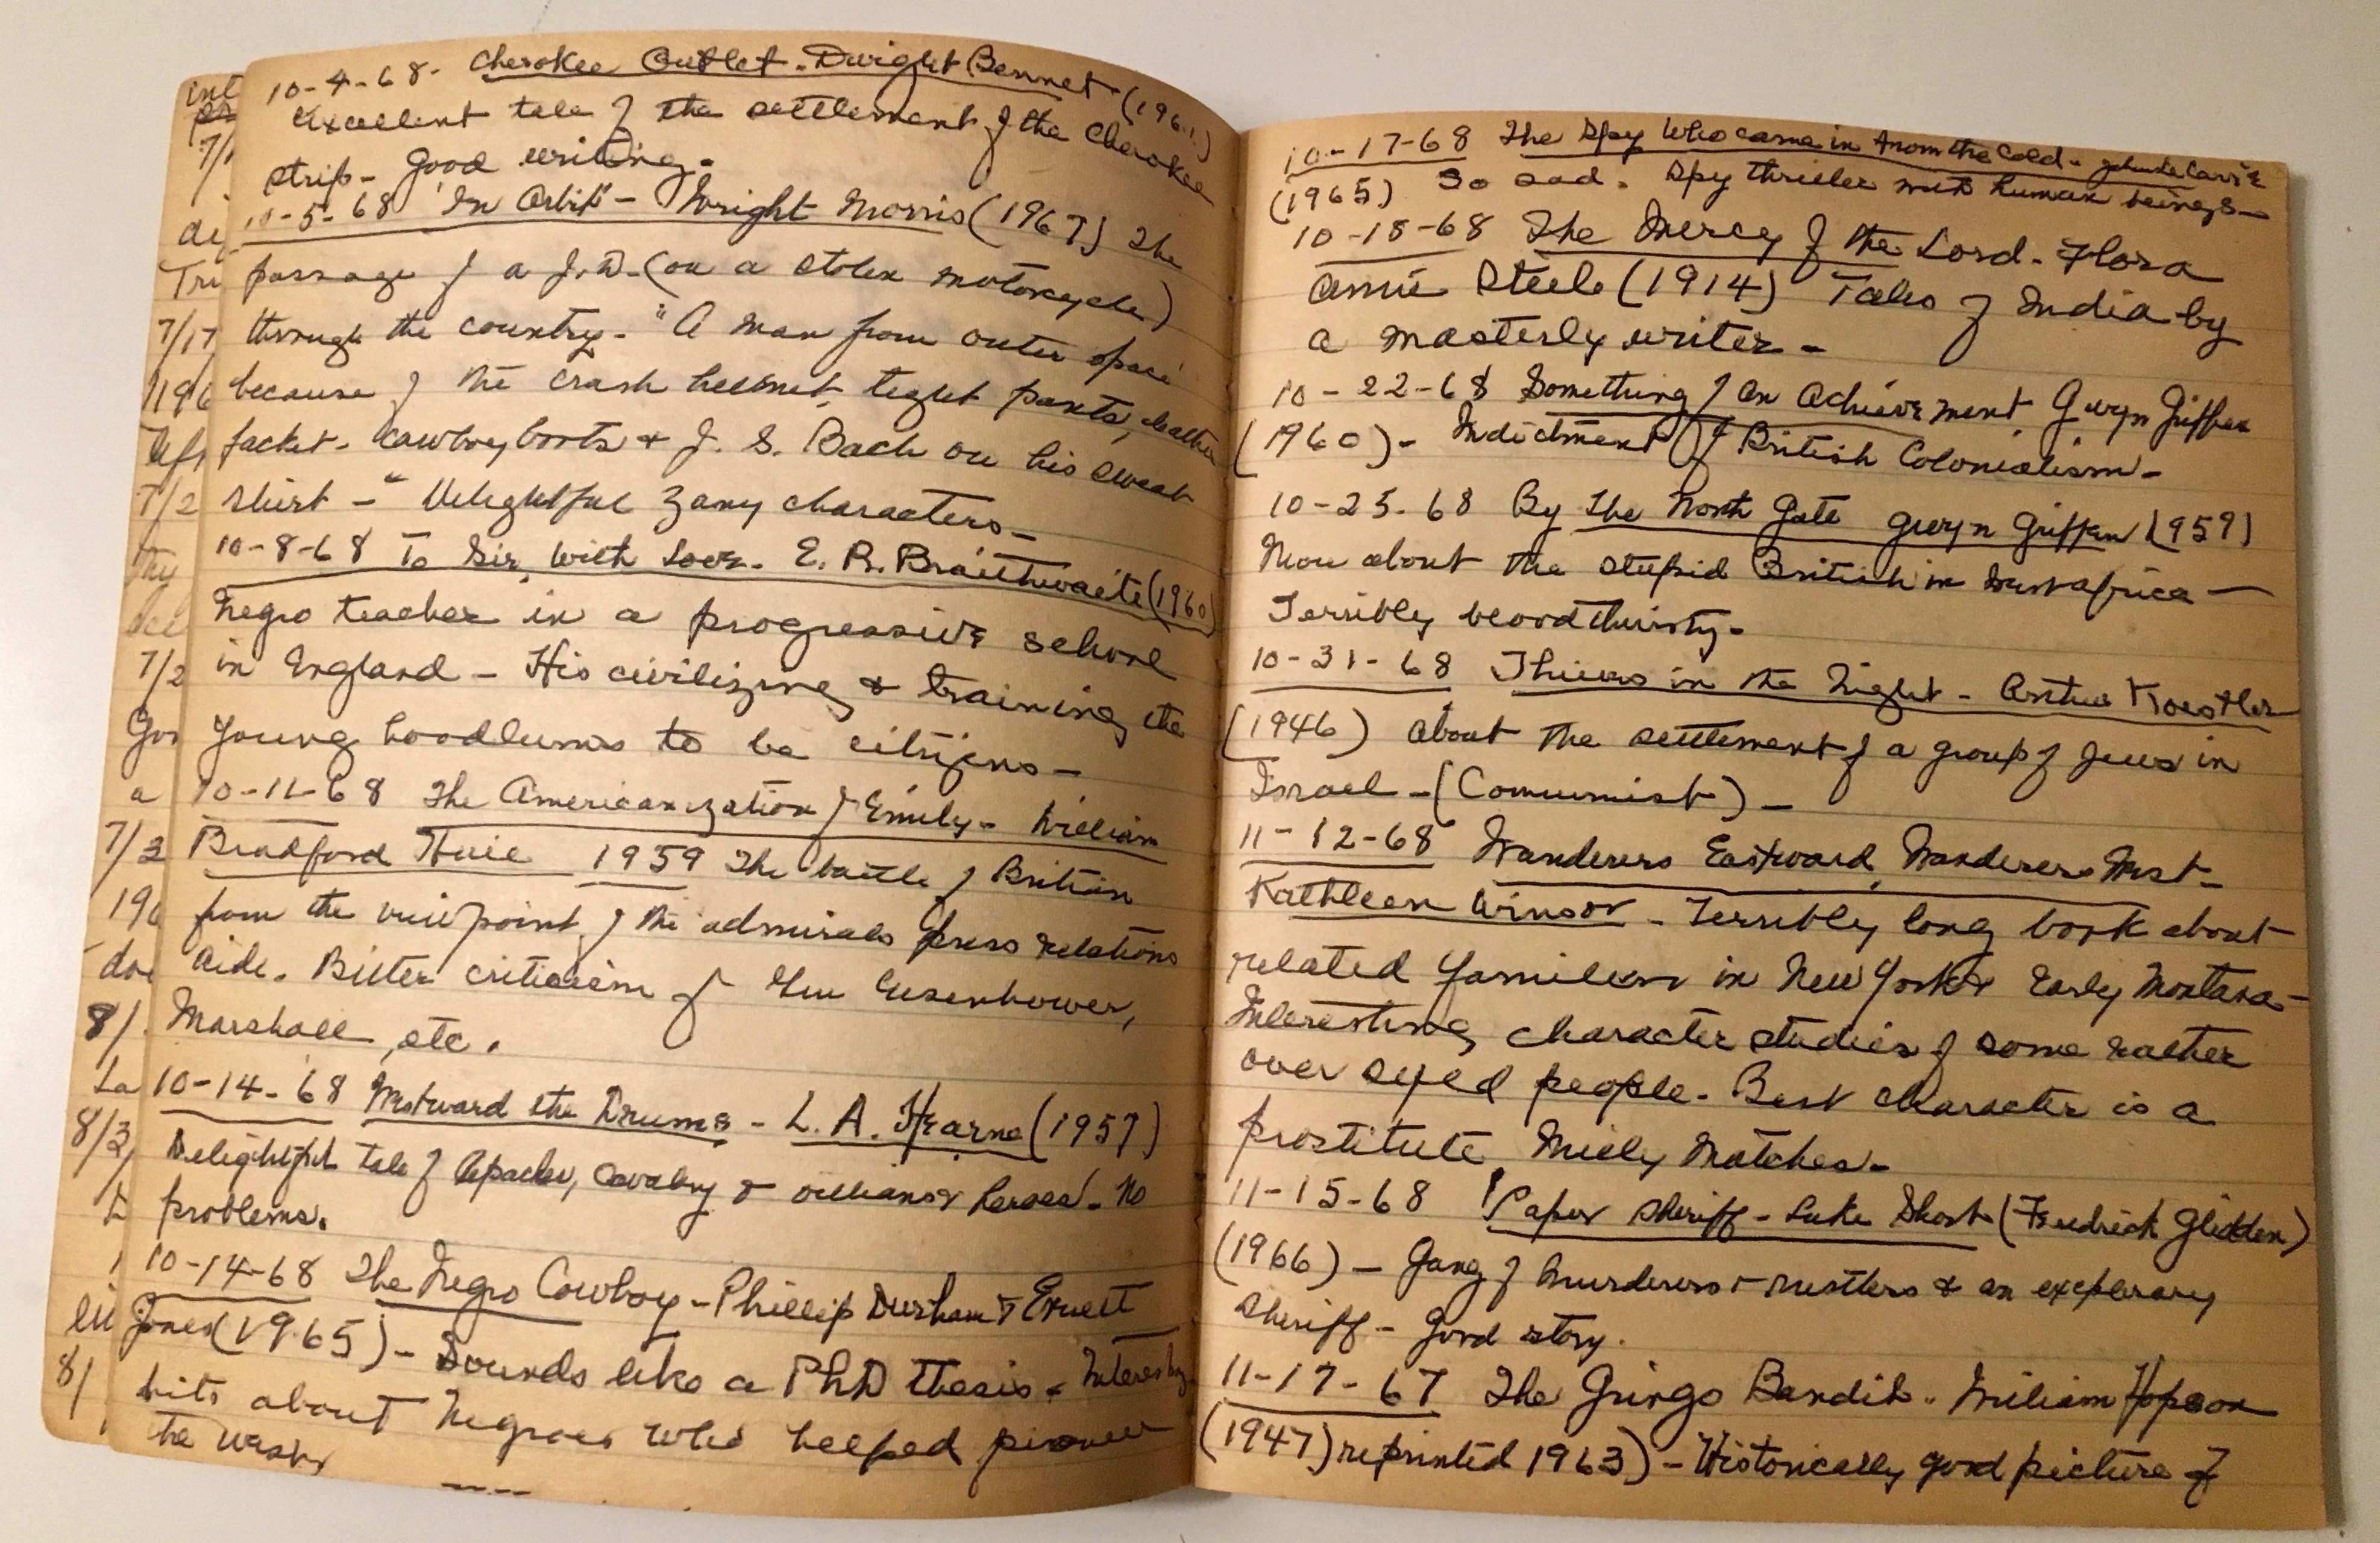 10-4-68- Cherokee Outlet. Dwight Bennet (1961)
Excellent tale of the settlement of the Cherokee
strip- Good writing.
10-5-68 "In Orbit" - Wright Morris (1967) The
passage of a J.D. (on a stolen motorcycle)
through the country. "A man from outer space
because of the crash helmet, tight pants, leather
jacket. Cowboy boots & J. S. Bach on his sweat
shirt -" Delightful zany characters-
10-8-68 To Sir, With Love. E. R. Braithwaite (1960)
Negro teacher in a progressive school
in England - His civilizing & training the
young hoodlums to be citizens-
10-11-68 The Americanization of Emily- William
Bradford Huie 1959 The battle of Britian
from the viewpoint of the admirals press relations
aide. Bitter criticism of Gen Eisenhower,
Marshall, etc.
10-14-68 Westward the Drums - L. A. Hearne (1957)
Delightful tale of Apache, Cavalry & villians & heroes - No
problems.
10-14-68 The Negro Cowboy - Phillip Durham & Ernest
Jones (1965) - Sounds like a PhD thesis. Interesting
bits about Negroes who helped pioneer
the West
int
7/
di
Tri
7/17
196
7/2
7/2
Gor
a
7/3
196
doe
8/
La
8/3
8/
10-17-68 The Spy Who came in from the Cold - John le Carré
(1965) So sad. Spy thriller with human beings-
10-18-68 The Mercy of the Lord - Flora
Annie Steele (1914) Tales of India by
a masterly writer -
10-22-68 Something of An Achievement. Gwyn Griffen
(1960) - Indictment of British Colonialism -
10-25-68 By The North Gate Gwyn Griffen (1959)
More about the stupid British in West Africa -
Terribly bloodthirsty-
10-31-68 Thieves in the Night - Arthur Koestler
(1946) About the settlement of a group of Jews in
Israel - (Communist) -
11-12-68 Wanderers Eastward, Wanderers West-
Kathleen Winsor - Terribly long book about
related families in New York & Early Montana-
Interesting character studies of some rather
over sexed people. Best character is a
prostitute, Milly Matches-
11-15-68 Paper Sheriff - Luke Short (Fredrick Glidden)
(1966) - Gang of murderers & rustlers & an explerary
sheriff - Good story.
11-17-67 The Gringo Bandit. William Hopson
(1947) reprinted 1963) - Historically good picture of